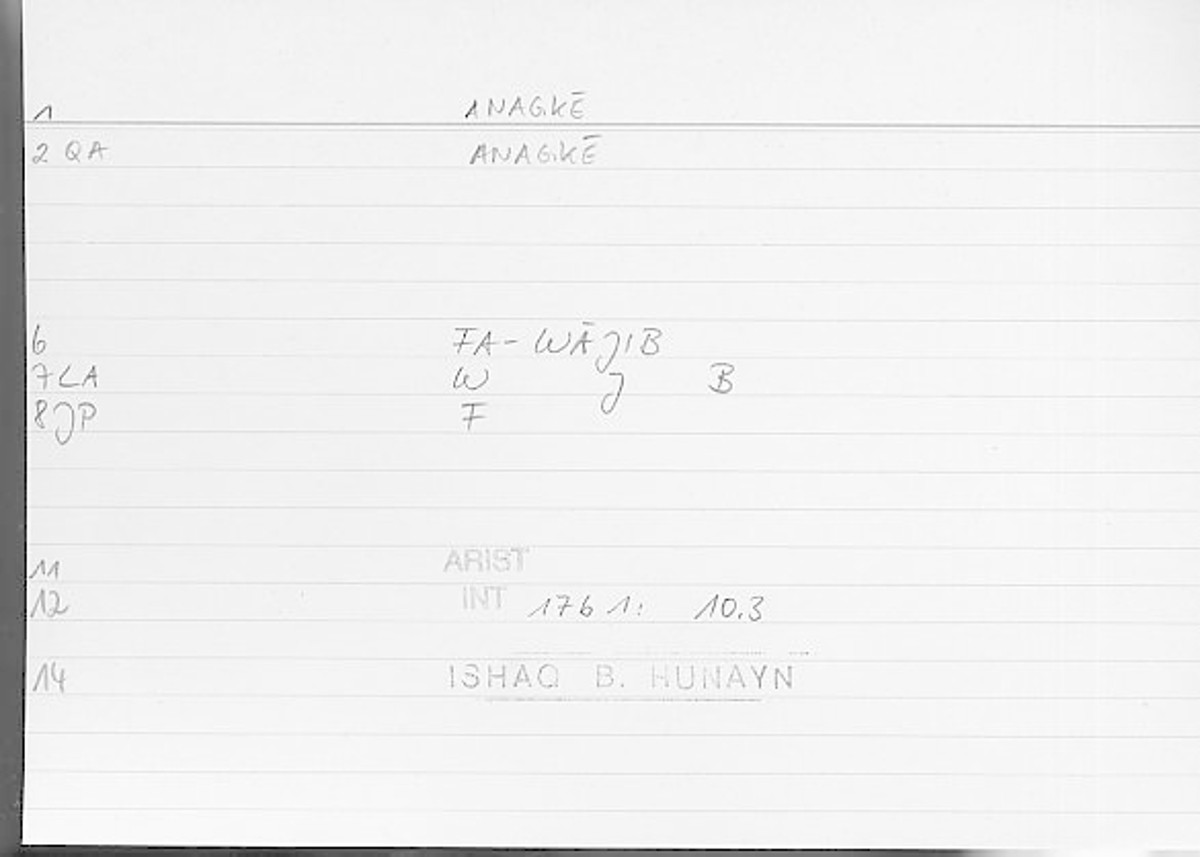 1 ANAGKĒ
2 QA ANAGKĒ
6 FA-WĀJIB
7 LA W J B
8 JP F
11 ARIST
12 INT 17b 1: 10.3
14 ISHAQ B. HUNAYN